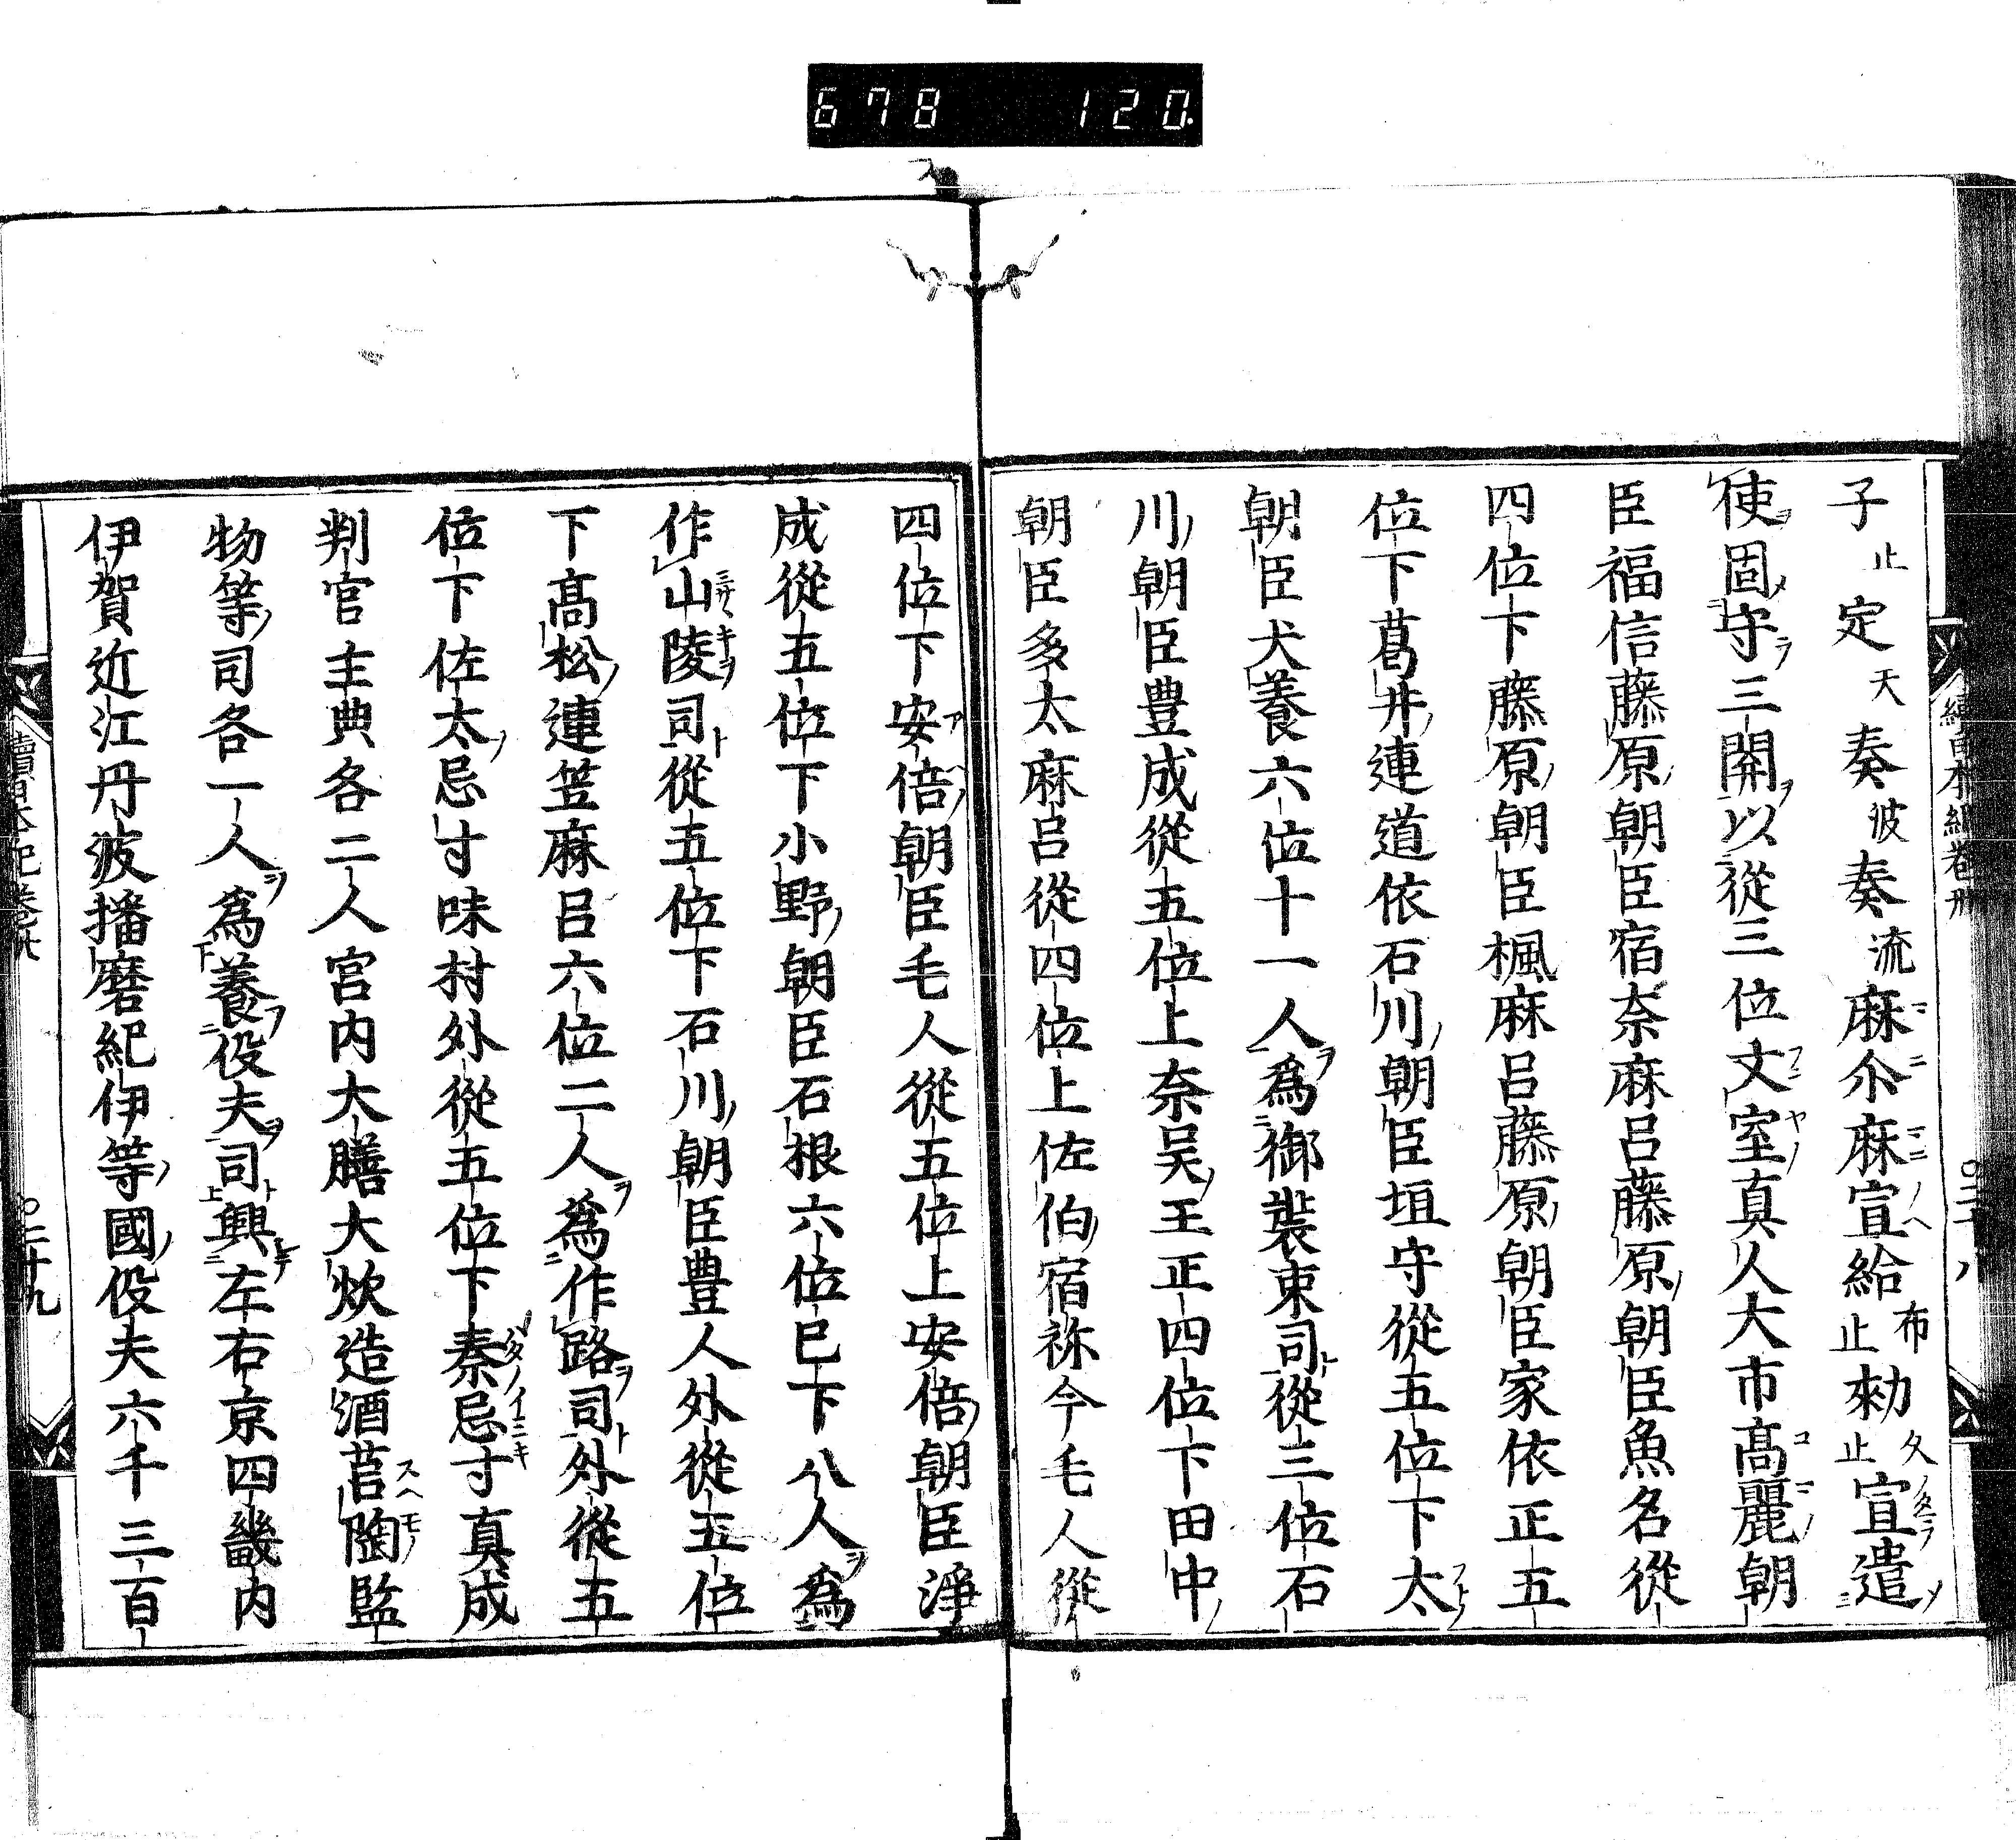 678 120
續日本紀卷卅 〇二十八
子止定天奏波奏流麻尒麻宣給布止勑久止宣遣
使固守三關以從三位文室真人大市髙麗朝
臣福信藤原朝臣宿奈麻呂藤原朝臣魚名從
四位下藤原朝臣楓麻呂藤原朝臣家依正五
位下葛井連道依石川朝臣垣守從五位下太
朝臣犬養六位十一人爲御裝束司從三位石
川朝臣豊成從五位上奈吴王正四位下田中
朝臣多太麻呂從四位上佐伯宿祢今毛人從
四位下安倍朝臣毛人從五位上安倍朝臣淨
成從五位下小野朝臣石根六位巳下八人爲
作山陵司從五位下石川朝臣豊人外從五位
下髙松連笠麻呂六位二人爲作路司外從五
位下佐太忌寸味村外從五位下秦忌寸真成
判官主典各二人宮内大膳大炊造酒莒陶監
物等司各一人爲養役夫司興左右京四畿内
伊賀近江丹波播磨紀伊等國役夫六千三百
續日本紀卷卅 〇二十九